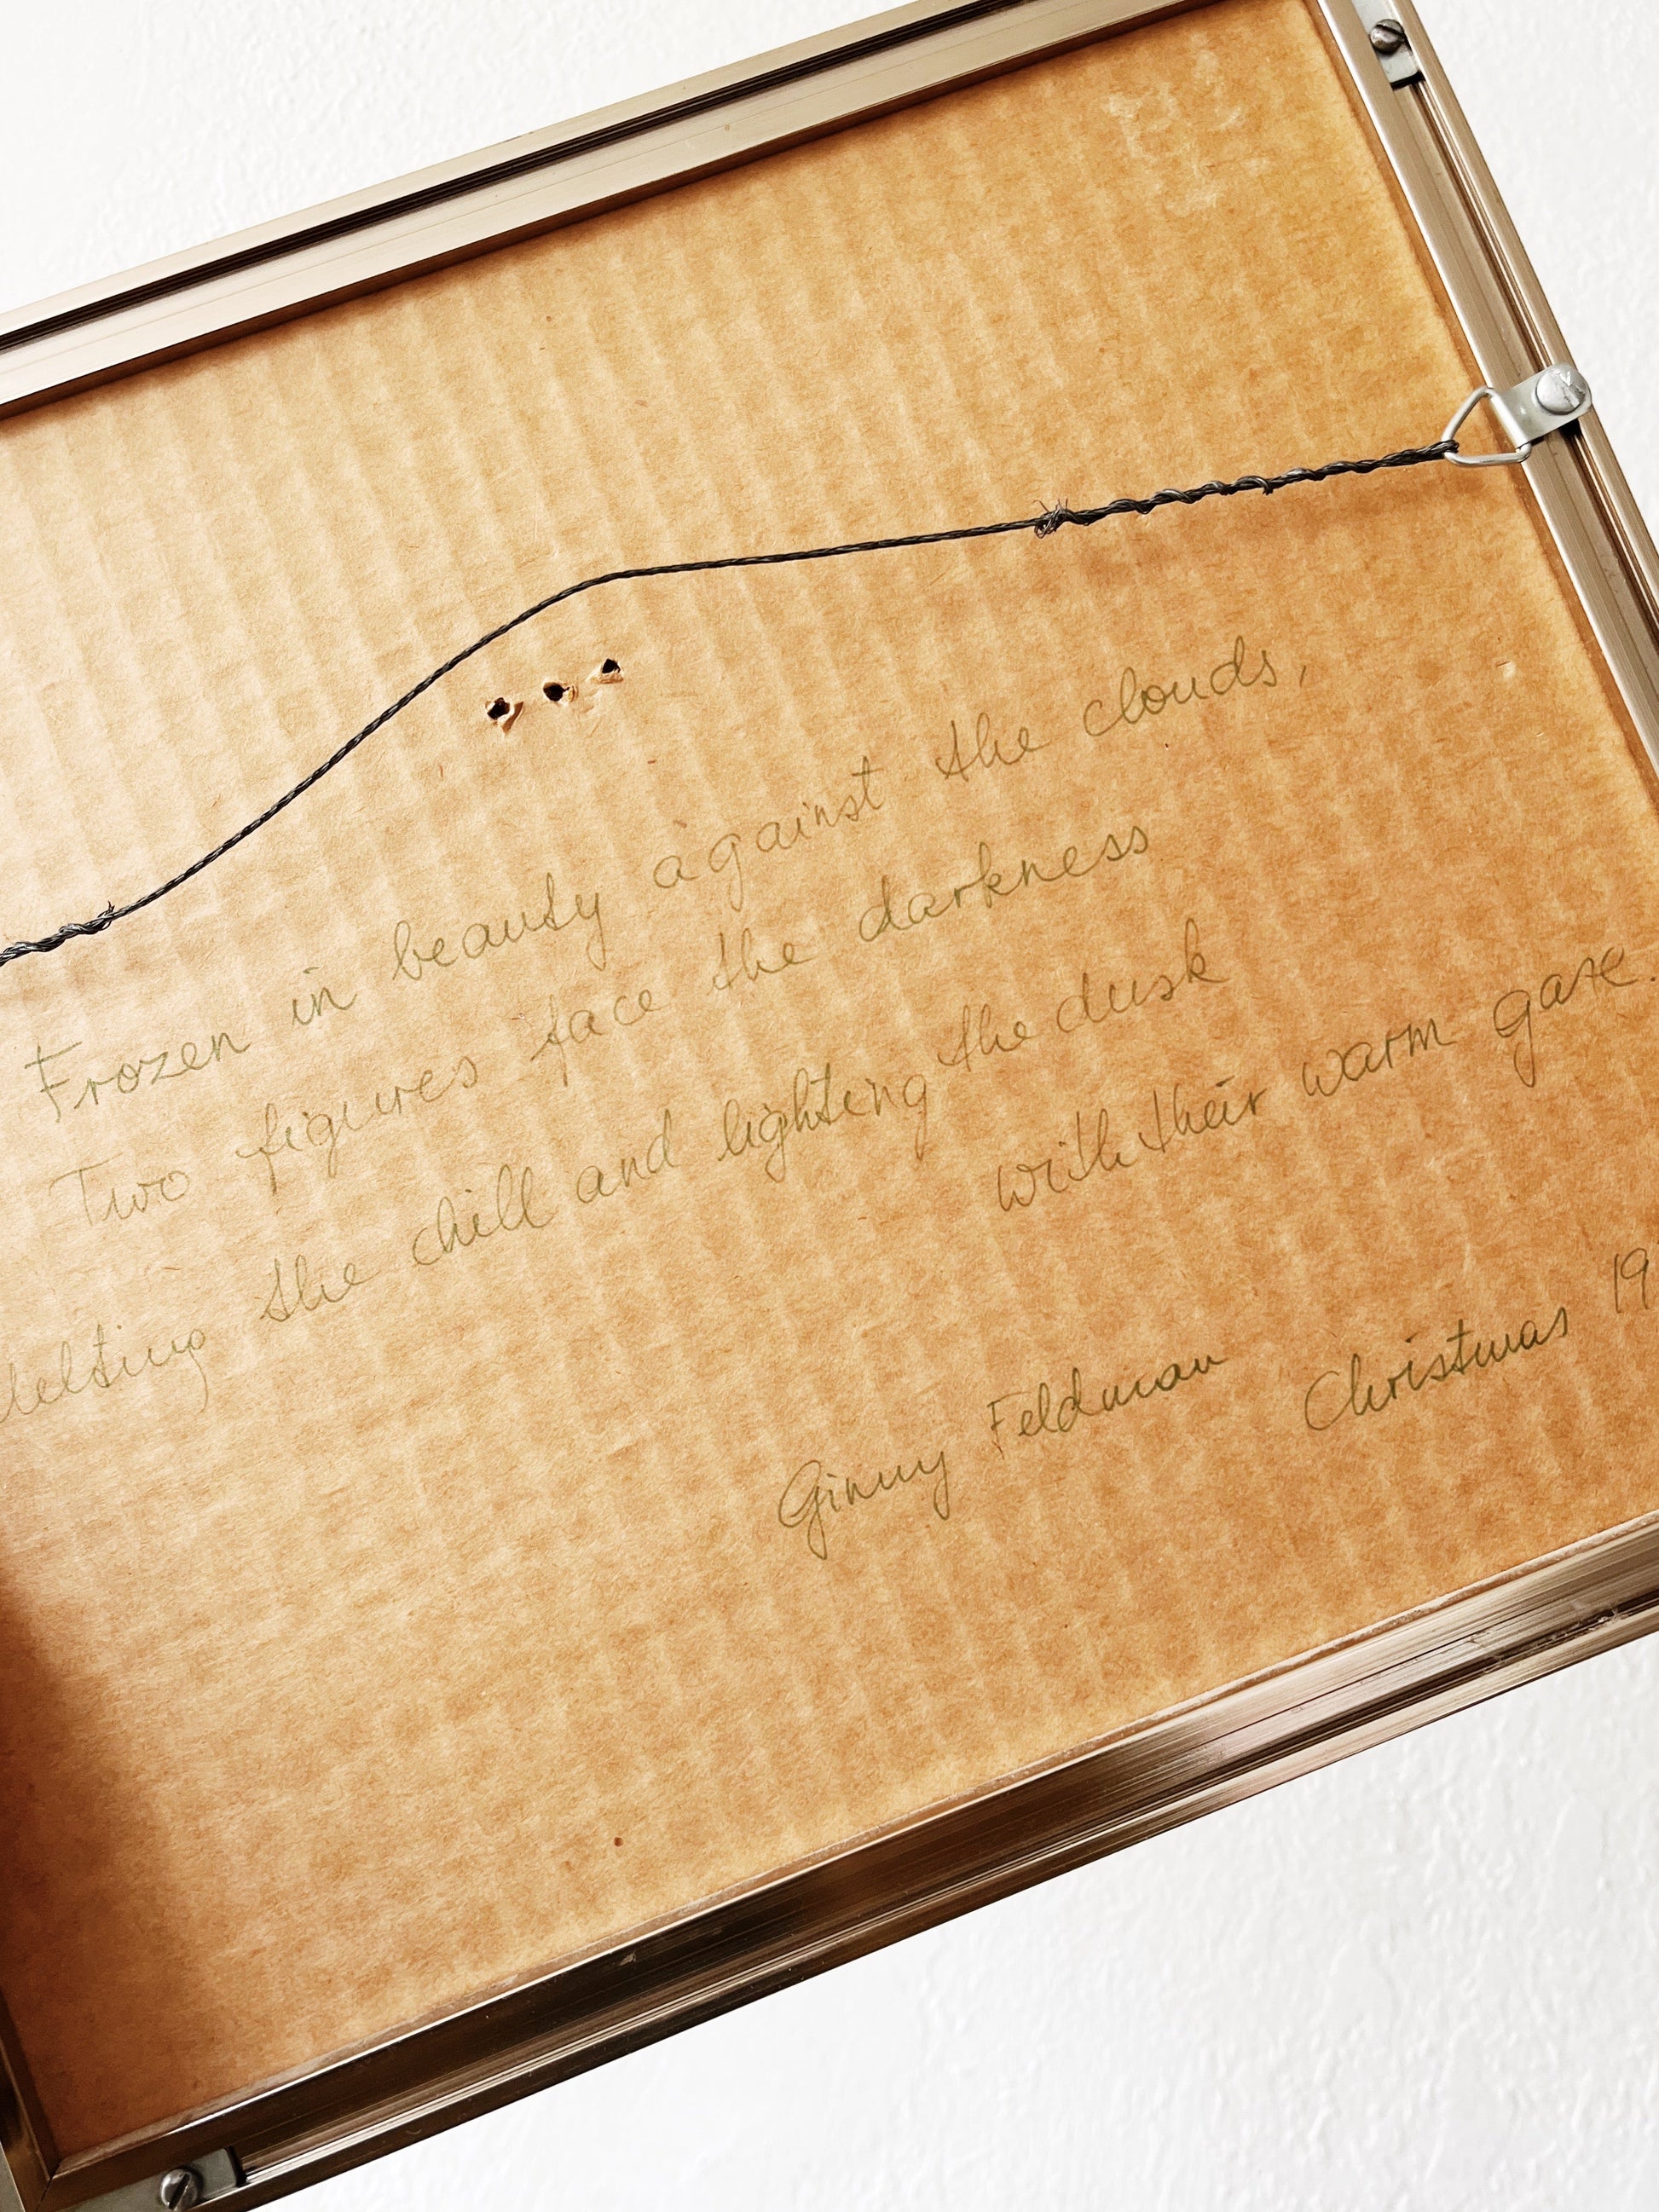 Frozen in beauty against the clouds,
Two figures face the darkness
Melting the chill and lighting the dusk
with their warm gaze.
Ginny Feldman Christmas 19